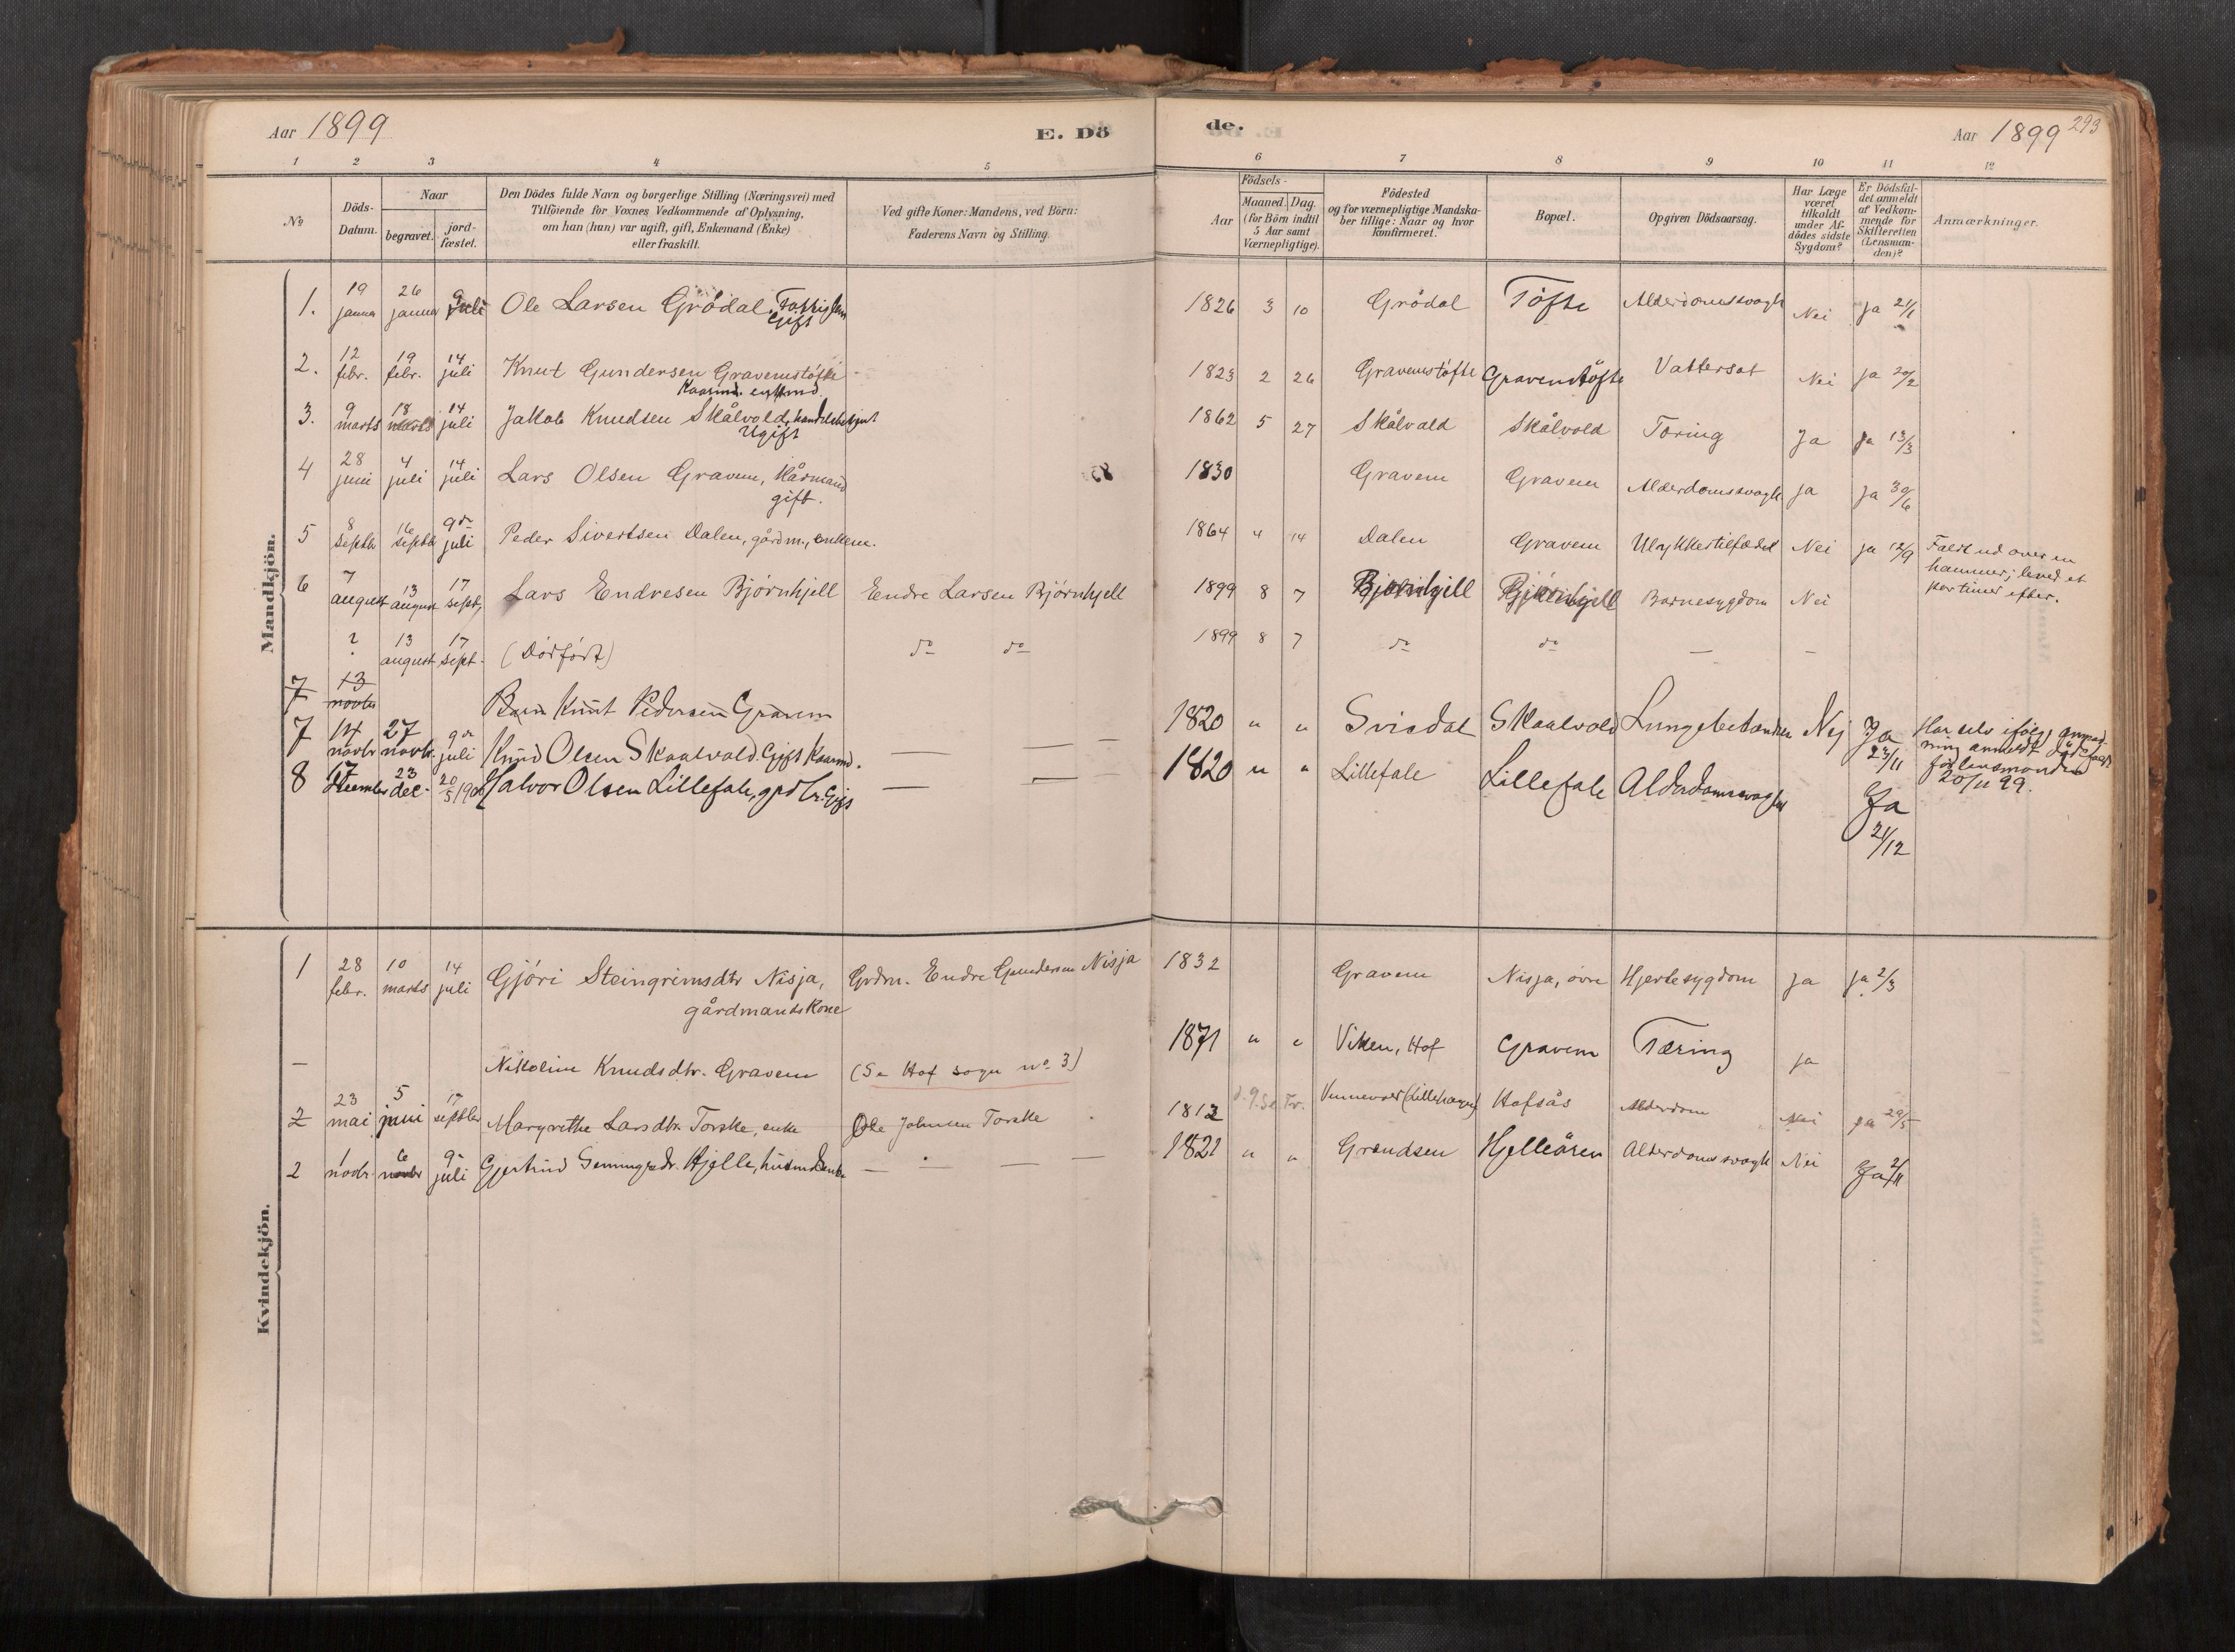 Aar 1899 E. Dö de. Aar 1899 293
1 2 3 4 5 6 7 8 9 10 11 12
No
Döds-Datum.
Naar
begravet.
jord-fæstet.
Den Dödes fulde Navn og borgerlige Stilling (Næringsvei) med
Tilföiende for Voxnes Vedkommende af Oplysning,
om han (hun) var ugift, gift, Enkemand (Enke)
eller fraskilt.
Ved gifte Koner: Mandens, ved Börn:
Faderens Navn og Stilling.
Födsels-
Aar
Maaned. Dag.
(for Börn indtil
5 Aar samt
Værnepligtige).
Födested
og for værnepligtige Mandska-
ber tillige: Naar og hvor
konfirmeret.
Bopæl.
Opgiven Dödsaarsag.
Har Læge
været
tilkaldt
under Af-
dödes sidste
Sygdom?
Er Dödsfal-
det anmeldt
af Vedkom-
mende for
Skifteretten
(Lensman-
den)?
Anmærkninger.
Mandkjön.
1. 19 januar 26 januar juli Ole Larsen Grödal, Gift 1826 3 10 Grödal Töfte Alderdomssvagh Nei Ja 21/1
2. 12 febr. 19 febr. 14 juli Knut Gundersen Gravemstöfte 1823 2 26 Gravemstöfte Gravemstöfte Vattersot Nei ja 20/2
Kaarm. enkmd.
3. 9 marts 18 marts 14 juli Jakob Knudsen Skålvold, Ugift 1862 5 27 Skålvold Skålvold Tæring Ja Ja 13/3
4 28 juni 4 juli 14 juli Lars Olsen Gravem, Kårmand gift. 1830 Gravem Gravem Alderdomssvagh ja ja 30/6
5 8 septbr 16 septbr 9de juli Peder Sivertsen Dalen, gårdm., enkem. 1864 4 14 Dalen Gravem Ulykkestilfældet Nei ja 12/9 Faldt ud over en
hammer; leved et
par timer efter.
6 7 august 13 august 17 sept, Lars Endresen Bjørnhjell Endre Larsen Bjørnhjell 1899 8 7 Bjørnhjell Bjørnhjell Barnesygdom Nei
? 13 august 17 sept. (Dødfødt) do do 1899 8 7 do do — —
7 13 novbr Barn Knut Pedersen Gravem
7 14 novbr 27 novbr. 9de juli Knud Olsen Skaalvold. Gift Kaarmd. — — — 1820 " " Svisdal Skaalvold Lungebetændse Nej Ja 23/11 Har selv ifölge
ning anmeldt dödsfaldet
for lensmanden
20/11 99.
8 17 decemb 23 dec. 20/5 1900 Halvor Olsen Lillefale, grdbr. Gift — — 1820 " " Lillefale Lillefale Alderdomssvaghed Ja 21/12
Kvindekjön.
1 28 febr. 10 marts 14 juli Gjöri Steingrimsdtr Nisja, Grdm. Endre Gundersen Nisja 1832 Gravem Nisja, övre Hjertesygdom Ja ja 2/3
gårdmands Kone
— Nikoline Knudsdtr. Gravem (Se Hof sogn no. 3) 1871 " " Viken, Hof Gravem Tæring ja
2 23 mai 5 juni 17 septbr Margrethe Larsdtr. Torske, enke Ole Johnsen Torske 1812 Hofsås Alderdom Nei ja 29/5
2 1 novbr. 6 novbr 9de juli Gjertrud Hjelle, husmdenke — — — 1821 " " Grændsen Hjelleören Alderdomssvagh Nei Ja 2/11